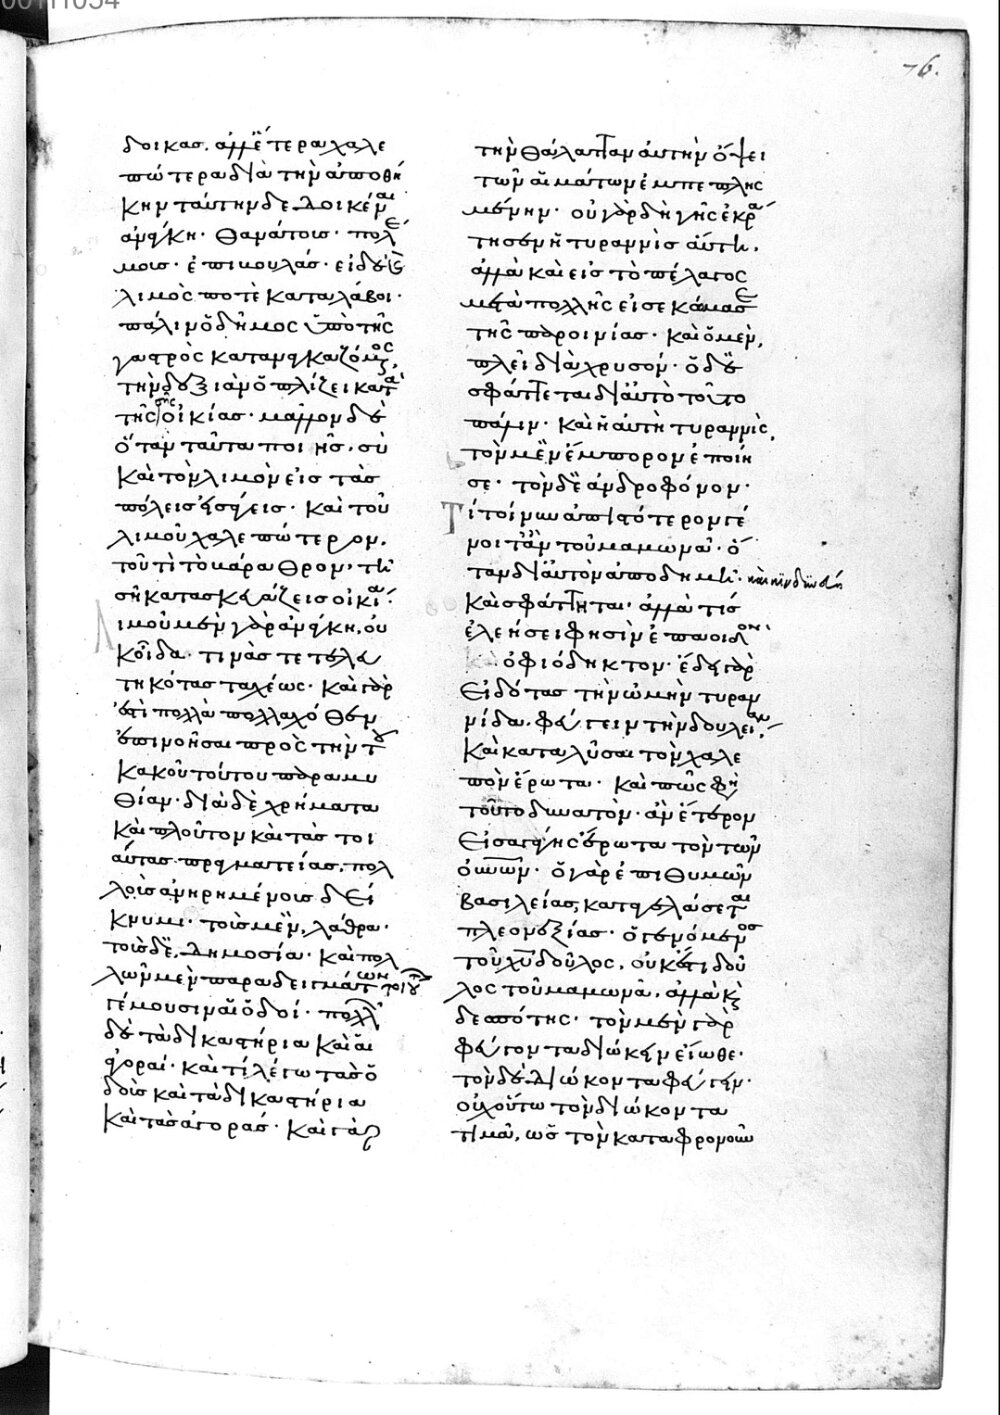 76.
δοικας. ἀλλ' ἕτερα χαλε
πώτερα διὰ τὴν ἀποθή
κην ταύτην δέδοικέναι
ἀνάγκη· θανάτοις· πολέ
μοις· ἐπιβουλάς· εἰ δὲ καὶ
λιμὸς ποτὲ καταλάβοι·
πάλιν ὁ δῆμος ὑπὸ τῆς
γαστρὸς καταναγκαζόμενος,
τὴν δεξιὰν ὁπλίζει κατὰ
τῆς σῆς οἰκίας· μᾶλλον δὲ
ὅταν ταῦτα ποιῇς· σὺ
καὶ τὸν λιμὸν εἰς τὰς
πόλεις εἰσάγεις· καὶ τοῦ
λιμοῦ χαλεπώτερον.
τοῦτο τὸ βάραθρον· τῇ
σῇ κατασκευάζεις οἰκίᾳ·
λιμοῦ μὲν γὰρ ἀνάγκη, οὐ
κ οἶδά τινάς τετελευ
τηκότας ταχέως· καὶ γὰρ
ἔστι πολλὰ πολλαχόθεν
ἐπινοῆσαι πρὸς τὴν τοῦ
κακοῦ τούτου παραμυ
θίαν· διὰ δὲ χρήματα
καὶ πλοῦτον καὶ τὰς τοι
αύτας πραγματείας, πολ
λοὺς ἀνῃρημένους δεί
κνυμι· τοὺς μὲν, λάθρα·
τοὺς δὲ, δημοσίᾳ· καὶ πολ
λῶν μὲν παραδειγμάτων τοιούτων
γέμουσιν αἱ ὁδοί· πολλῶν
δὲ τὰ δικαστήρια καὶ αἱ
ἀγοραί· καὶ τί λέγω τὰς ὁ
δοὺς καὶ τὰ δικαστήρια
καὶ τὰς ἀγοράς· καὶ γὰρ
τὴν θάλατταν αὐτὴν ὄψει
τῶν αἱμάτων ἐμπεπλης
μένην· οὐ γὰρ δὴ γῆς ἐκρά
τησεν ἡ τυραννὶς αὕτη,
ἀλλὰ καὶ εἰς τὸ πέλαγος
μετὰ πολλῆς εἰσεκώμασε
τῆς παροινίας· καὶ ὁ μὲν,
πλεῖ διὰ χρυσόν· ὁ δὲ
σφάττεται δι' αὐτὸ τοῦτο
πάλιν· καὶ ἡ αὐτὴ τυραννὶς,
τὸν μὲν ἔμπορον ἐποίη
σε· τὸν δὲ ἀνδροφόνον·
τί τοίνυν ἀπιστότερον γέ
νοιτ' ἂν τοῦ μαμωνᾶ· ὅ
ταν δι' αὐτὸν ἀποδημῇ· καὶ κινδυνεύῃ
καὶ σφάττηται· ἀλλὰ τίς
ἐλεήσει φησὶν ἐπαοιδὸν
ὀφιόδηκτον· ἔδει γὰρ
εἰδότας τὴν ὠμὴν τυραν
νίδα, φεύγειν τὴν δουλείαν,
καὶ καταλῦσαι τὸν χαλε
πὸν ἔρωτα· καὶ πῶς φησὶ
τοῦτο δυνατὸν· ἂν ἕτερον
εἰσαγάγῃς ἔρωτα τὸν τῶν
οὐρανῶν· ὁ γὰρ ἐπιθυμῶν
βασιλείας, καταγελάσεται
πλεονεξίας· ὁ γενόμενος
τοῦ χυ δοῦλος, οὐκ ἔστι δοῦ
λος τοῦ μαμωνᾶ, ἀλλὰ καὶ
δεσπότης· τὸν μὲν γὰρ
φεύγοντα διώκειν εἴωθε·
τὸν δὲ διώκοντα φεύγειν·
οὐχ οὕτω τὸν διώκοντα
τιμᾷ, ὡς τὸν καταφρονοῦν